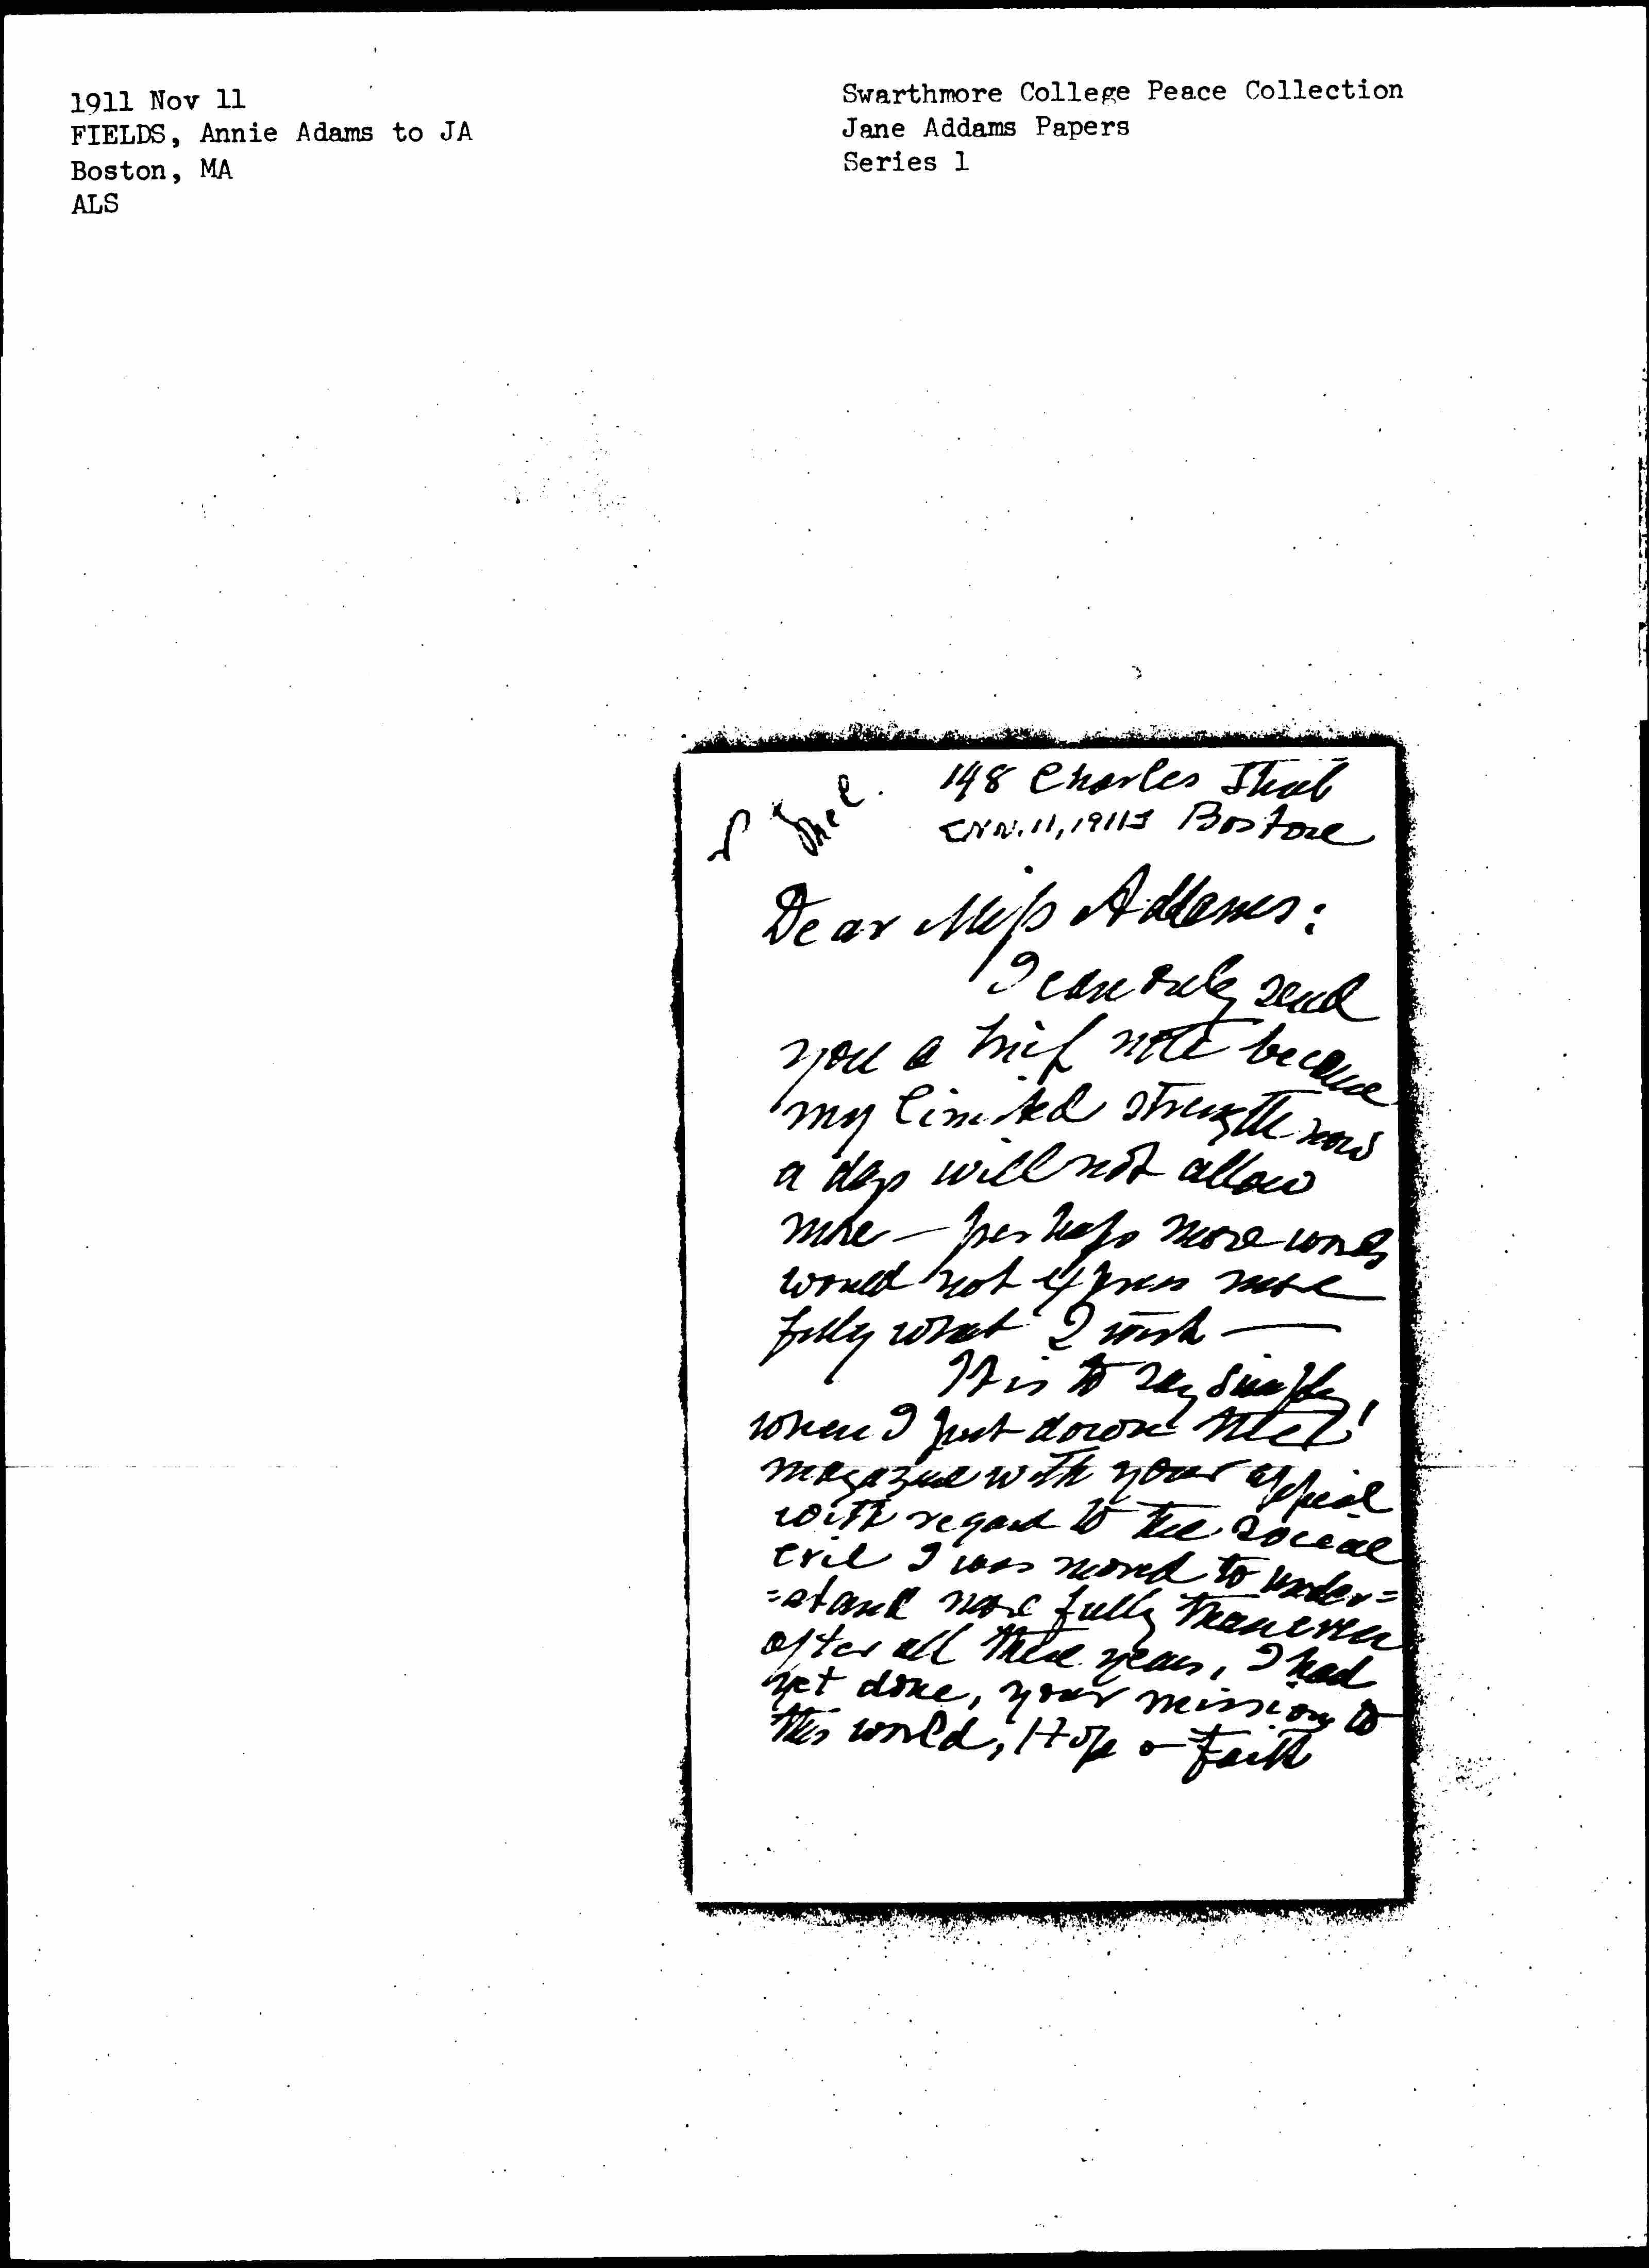 1911 Nov 11
FIELDS, Annie Adams to JA
Boston, MA
ALS
Swarthmore College Peace Collection
Jane Addams Papers
Series 1
148 Charles Street
[Nov. 11, 1911] Boston
Dear Miss Addams:
I can only send
you a brief note because
my limited strength now
a days will not allow
more — perhaps more words
would not express more
fully what I wish —
It is to say simply
when I put down the
magazine with your appeal
with regard to the social
evil I was moved to under=
=stand more fully than even
after all these years, I had
yet done, your mission to
this world, Hope & Faith